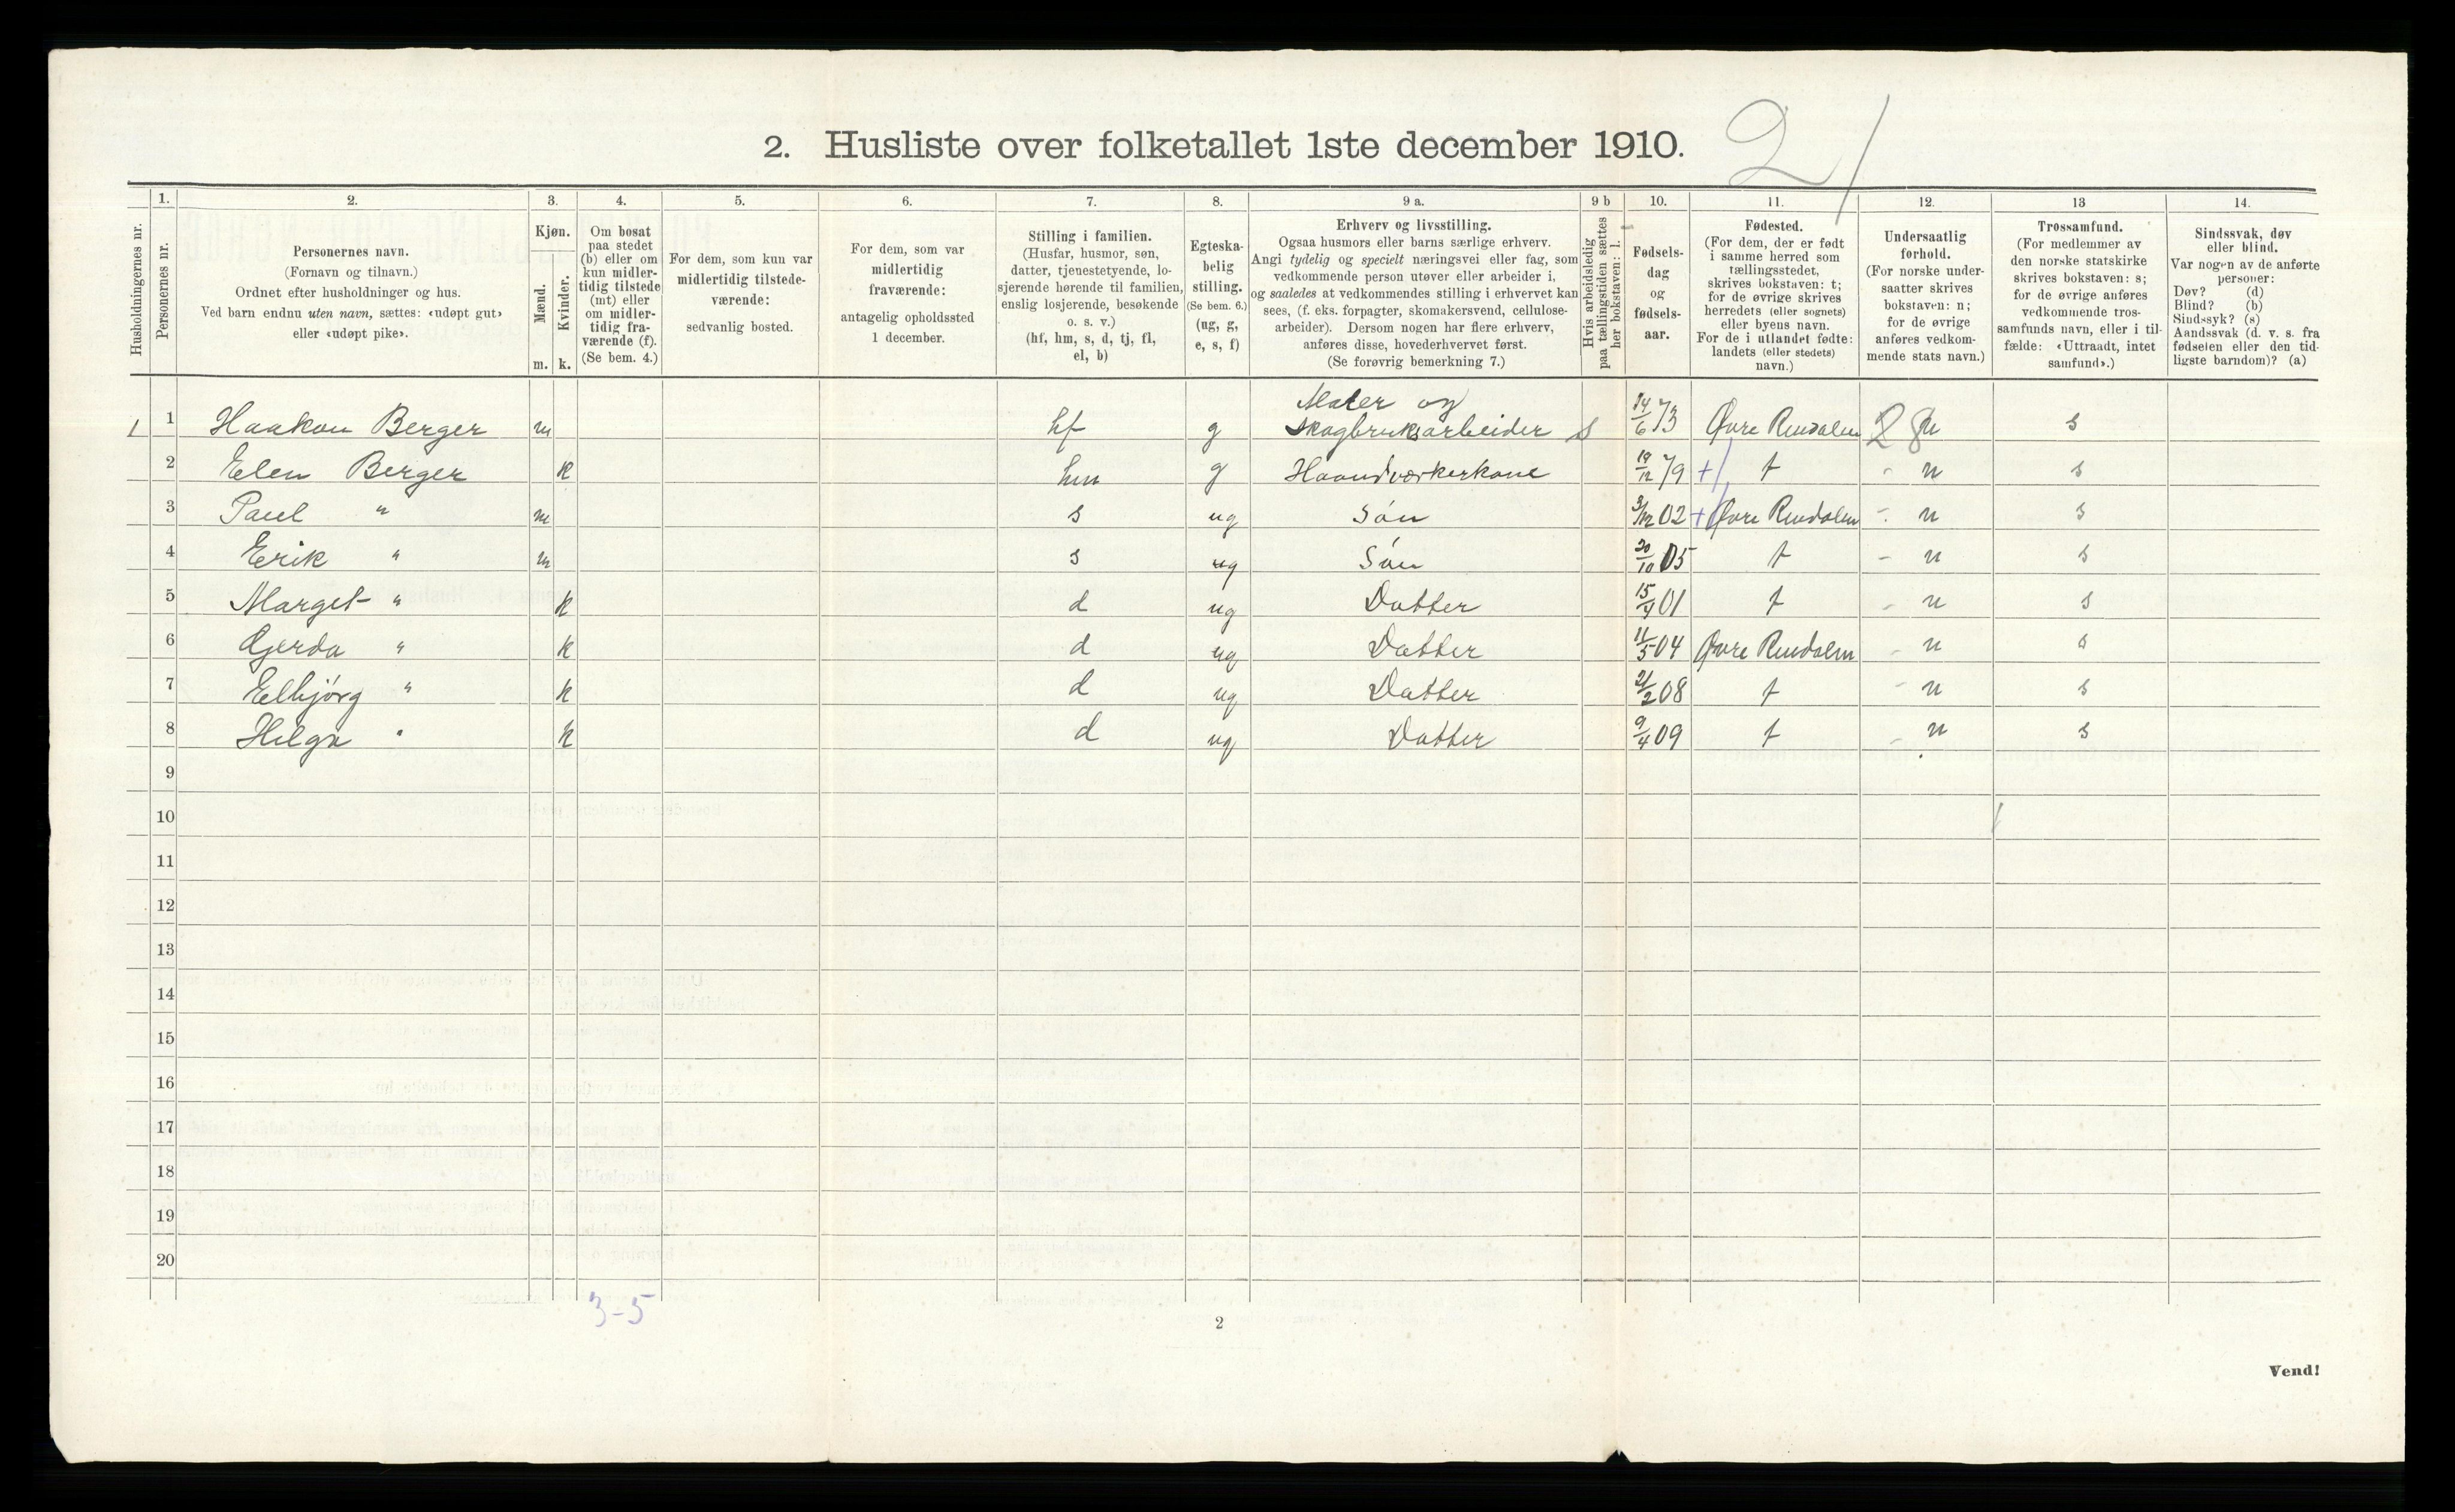 2. Husliste over folketallet 1ste december 1910.
21
Husholdningernes nr.
1.
Personernes nr.
2.
Personernes navn.
(Fornavn og tilnavn.)
Ordnet efter husholdninger og hus.
Ved barn endnu uten navn, sættes: «udøpt gut»
eller «udøpt pike».
3.
Kjøn.
Mænd.
Kvinder.
m. k.
4.
Om bosat
paa stedet
(b) eller om
kun midler-
tidig tilstede
(mt) eller
om midler-
tidig fra-
værende (f).
(Se bem. 4.)
5.
For dem, som kun var
midlertidig tilstede-
værende:
sedvanlig bosted.
6.
For dem, som var
midlertidig
fraværende:
antagelig opholdssted
1 december.
7.
Stilling i familien.
(Husfar, husmor, søn,
datter, tjenestetyende, lo-
sjerende hørende til familien,
enslig losjerende, besøkende
o. s. v.)
(hf, hm, s, d, tj, fl,
el, b)
8.
Egteska-
belig
stilling.
(Se bem. 6.)
(ug, g,
e, s, f)
9 a.
Erhverv og livsstilling.
Ogsaa husmors eller barns særlige erhverv.
Angi tydelig og specielt næringsvei eller fag, som
vedkommende person utøver eller arbeider i,
og saaledes at vedkommendes stilling i erhvervet kan
sees, (f. eks. forpagter, skomakersvend, cellulose-
arbeider). Dersom nogen har flere erhverv,
anføres disse, hovederhvervet først.
(Se forøvrig bemerkning 7.)
9 b
Hvis arbeidsledig
paa tællingstiden sættes
her bokstaven: l.
10.
Fødsels-
dag
og
fødsels-
aar.
11.
Fødested.
(For dem, der er født
i samme herred som
tællingsstedet,
skrives bokstaven: t;
for de øvrige skrives
herredets (eller sognets)
eller byens navn.
For de i utlandet fødte:
landets (eller stedets)
navn.)
12.
Undersaatlig
forhold.
(For norske under-
saatter skrives
bokstaven: n;
for de øvrige
anføres vedkom-
mende stats navn.)
13
Trossamfund.
(For medlemmer av
den norske statskirke
skrives bokstaven: s;
for de øvrige anføres
vedkommende tros-
samfunds navn, eller i til-
fælde: «Uttraadt, intet
samfund».)
14.
Sindssvak, døv
eller blind.
Var nogen av de anførte
personer:
Døv? (d)
Blind? (b)
Sindssyk? (s)
Aandssvak (d. v. s. fra
fødselen eller den tid-
ligste barndom)? (a)
1 1 Haakon Berger m hf g Maler og skogbruksarbeider s 14/6 73 Øvre Rendalen 28 n s
2 Elen Berger k hm g Haandværkerkone 19/12 79 + t - n s
3 Paul " m s ug Søn 3/12 02 + Øvre Rendalen - n s
4 Erik " m s ug Søn 20/10 05 t - n s
5 Marget " k d ug Datter 15/4 01 t - n s
6 Gerda " k d ug Datter 11/5 04 Øvre Rendalen - n s
7 Elbjörg " k d ug Datter 21/2 08 t - n s
8 Helga " k d ug Datter 9/4 09 t - n s
9
10
11
12
13
14
15
16
17
18
19
20
3-5
2
Vend!